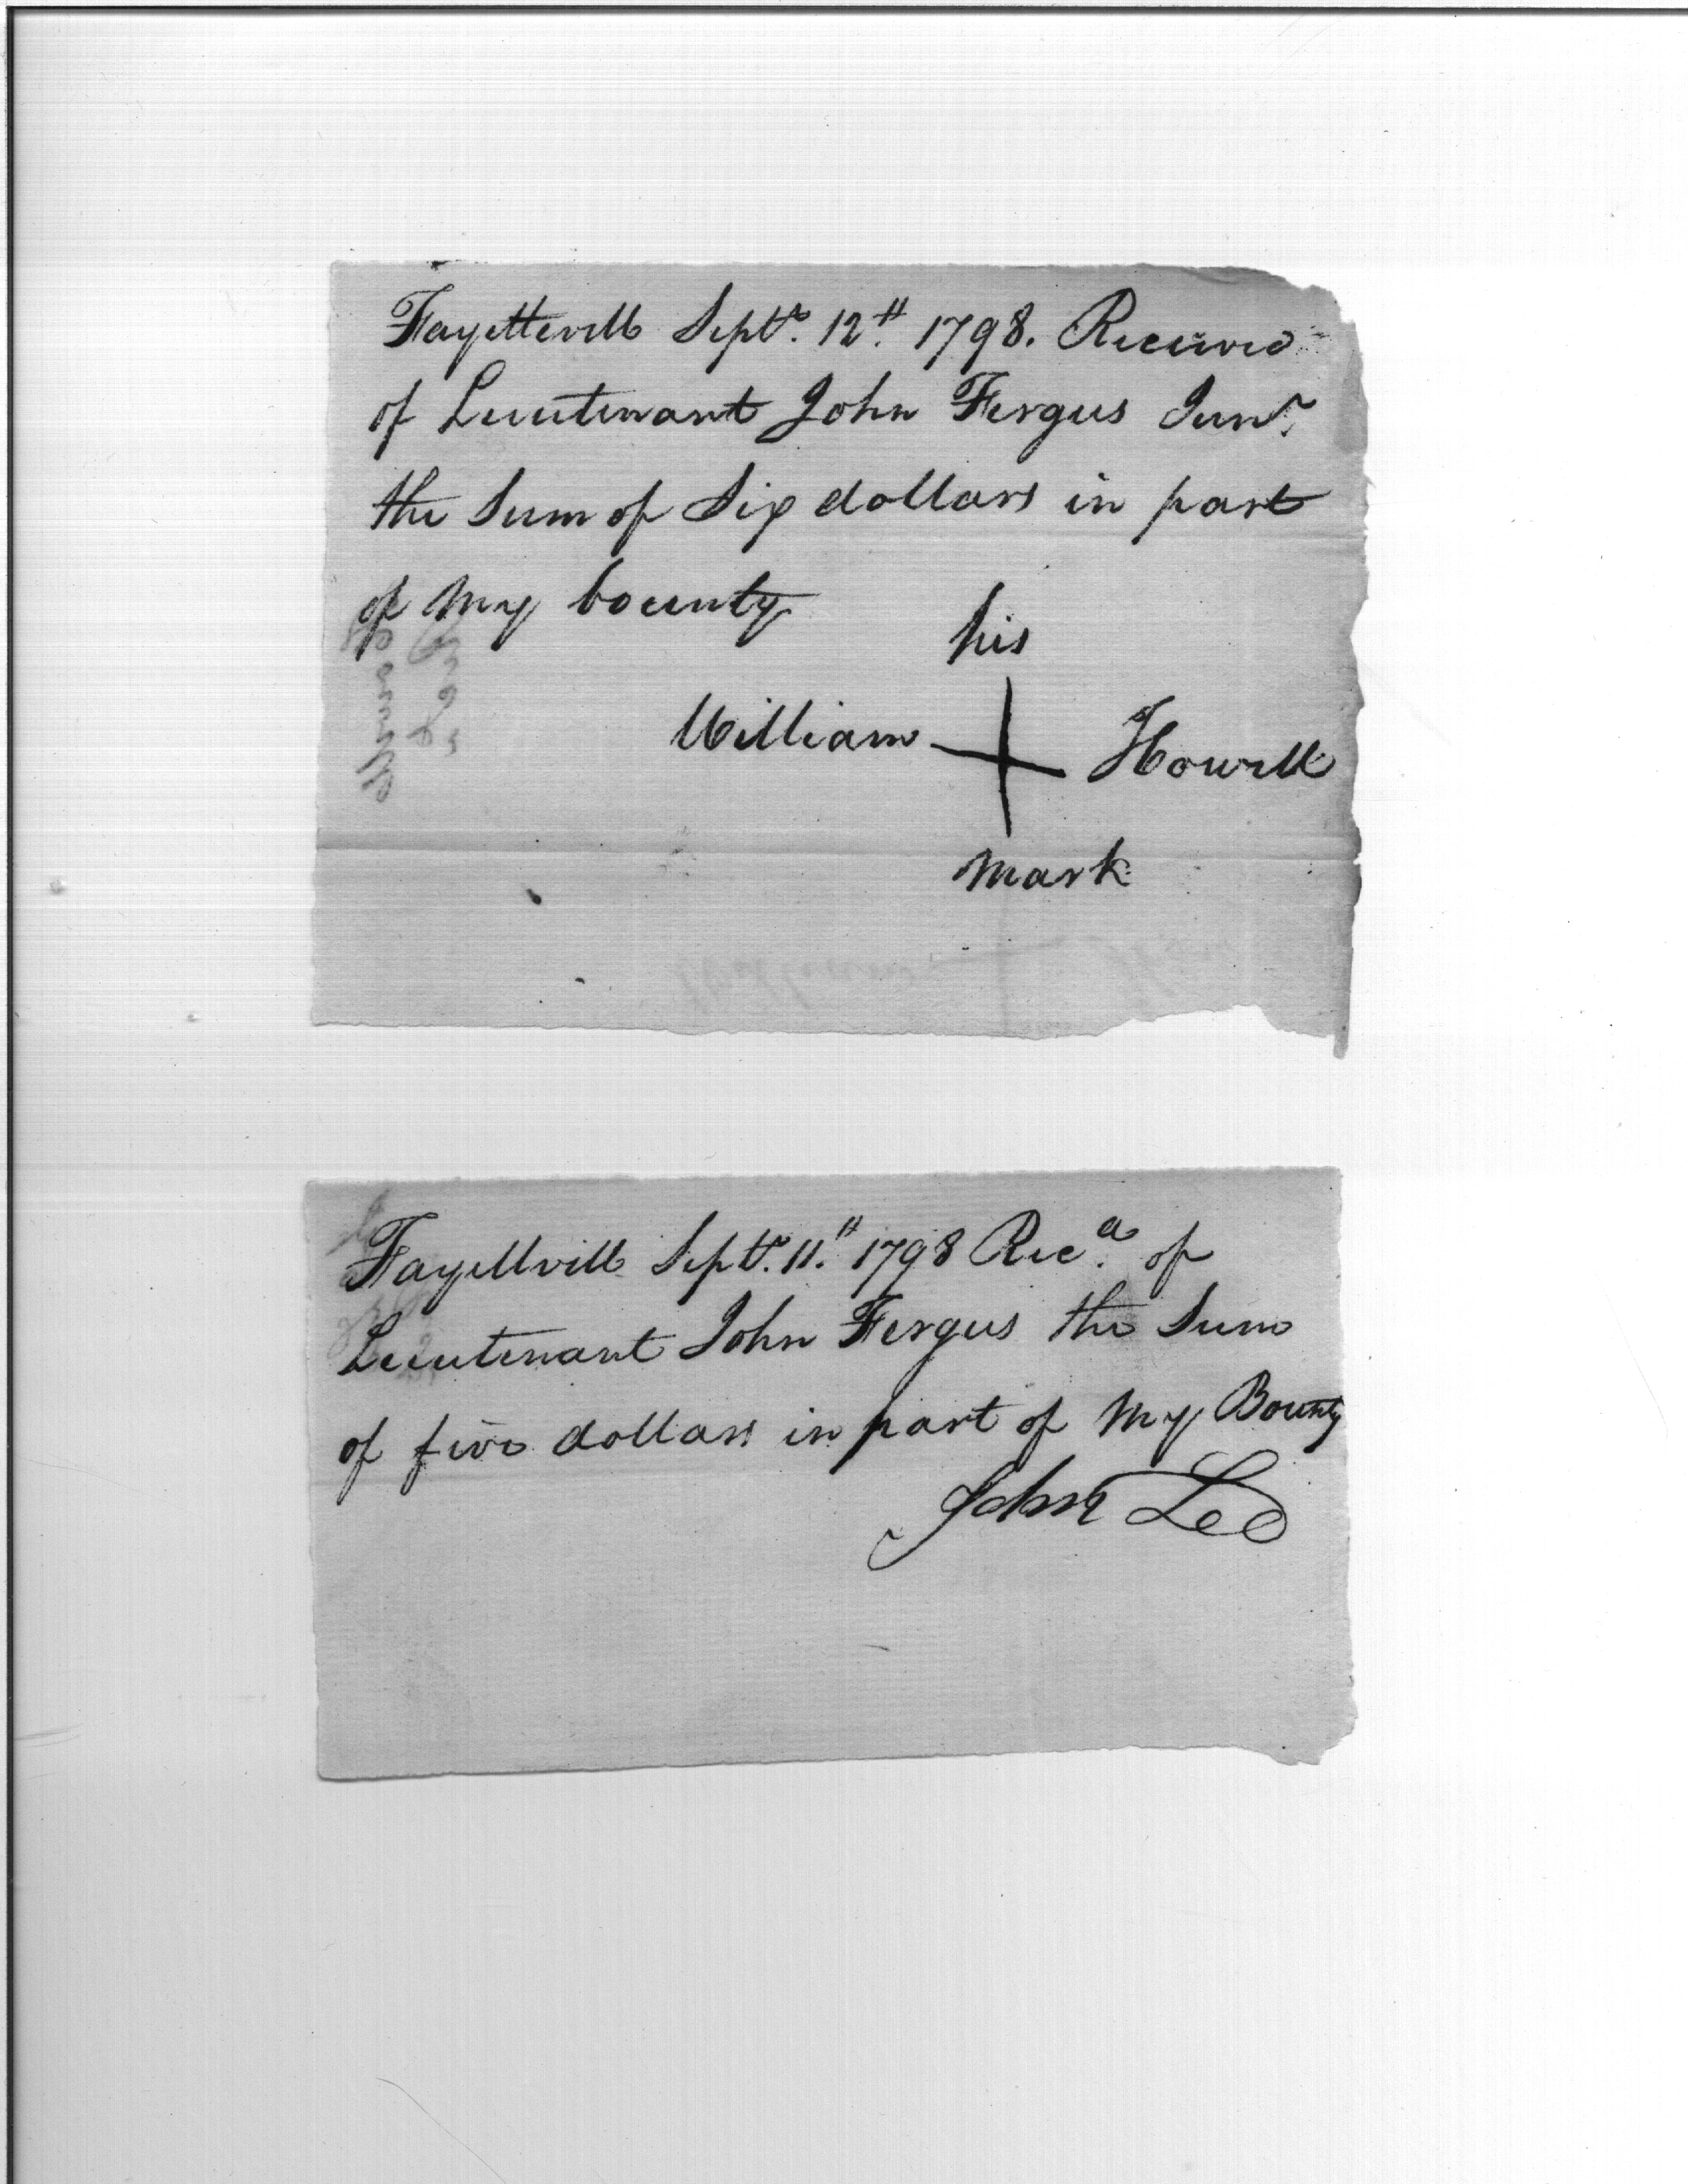 Fayettevill Septr. 12th 1798. Received
of Lieutenant John Fergus Junr.
the Sum of Six dollars in part
of My bounty
his
William + Howell
Mark
Fayettvill Septr. 11th 1798 Recd. of
Lieutenant John Fergus the Sum
of five dollars in part of My Bounty
John Lee